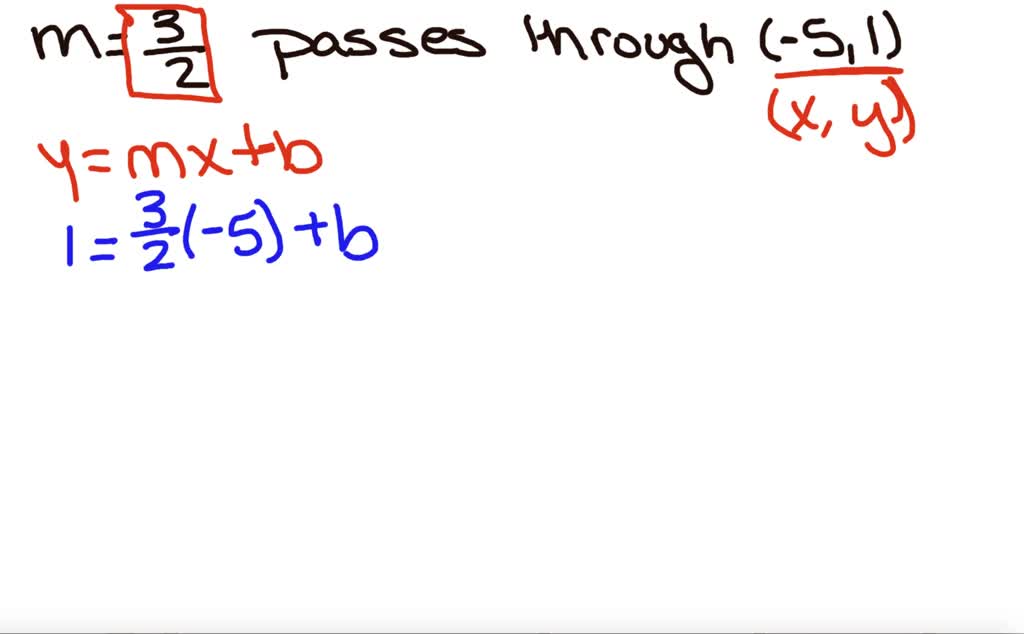 m=3/2 passes through (-5,1)
(x, y)
y=mx+b
1=3/2(-5)+b